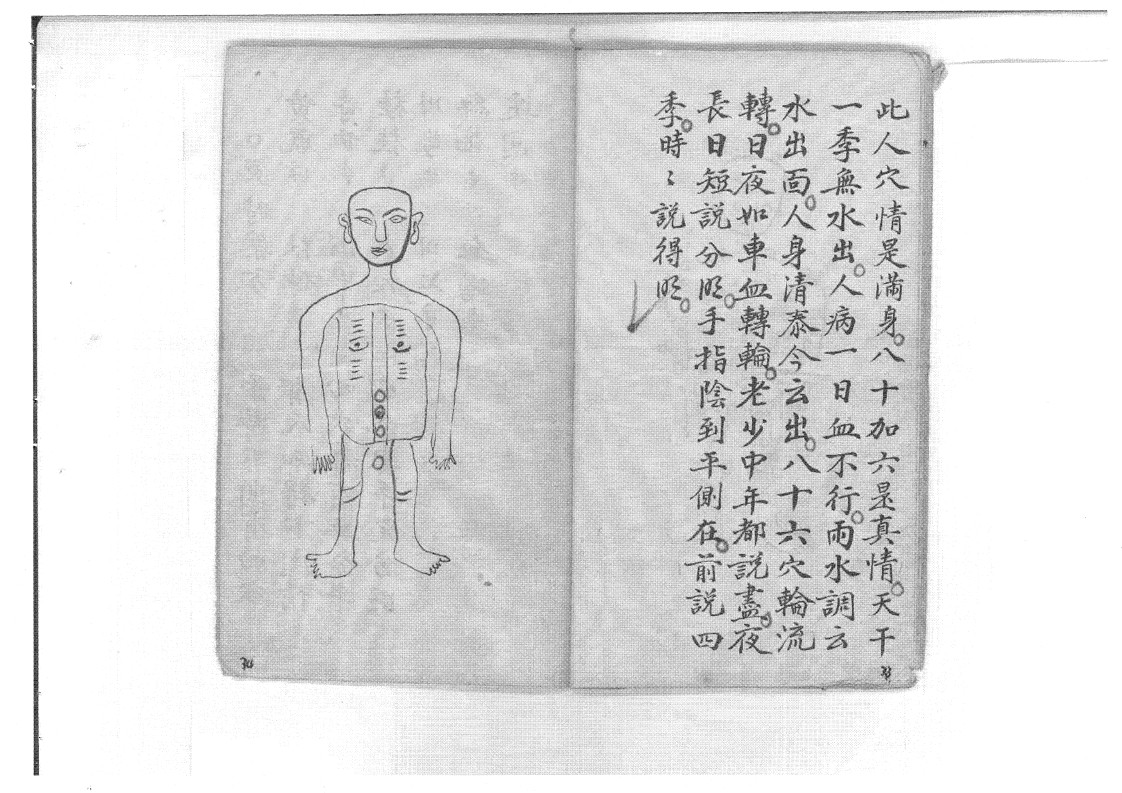 此人穴情是滿身。八十加六是真情。天干
一季無水出。人病一日血不行。雨水調云
水出面。人身清泰今云出。八十六穴輪流
轉。日夜如車血轉輪。老少中年都說盡。夜
長日短說分明。手指陰到平側在。前說四
季。時〻說得明。
33
34